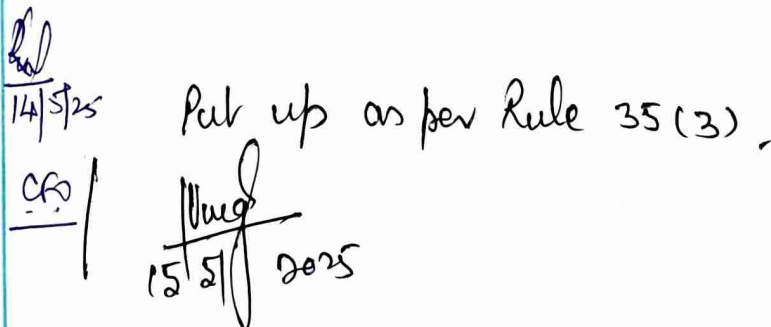 14/5/25
Put up as per Rule 35(3).
CFO
15/5/2025